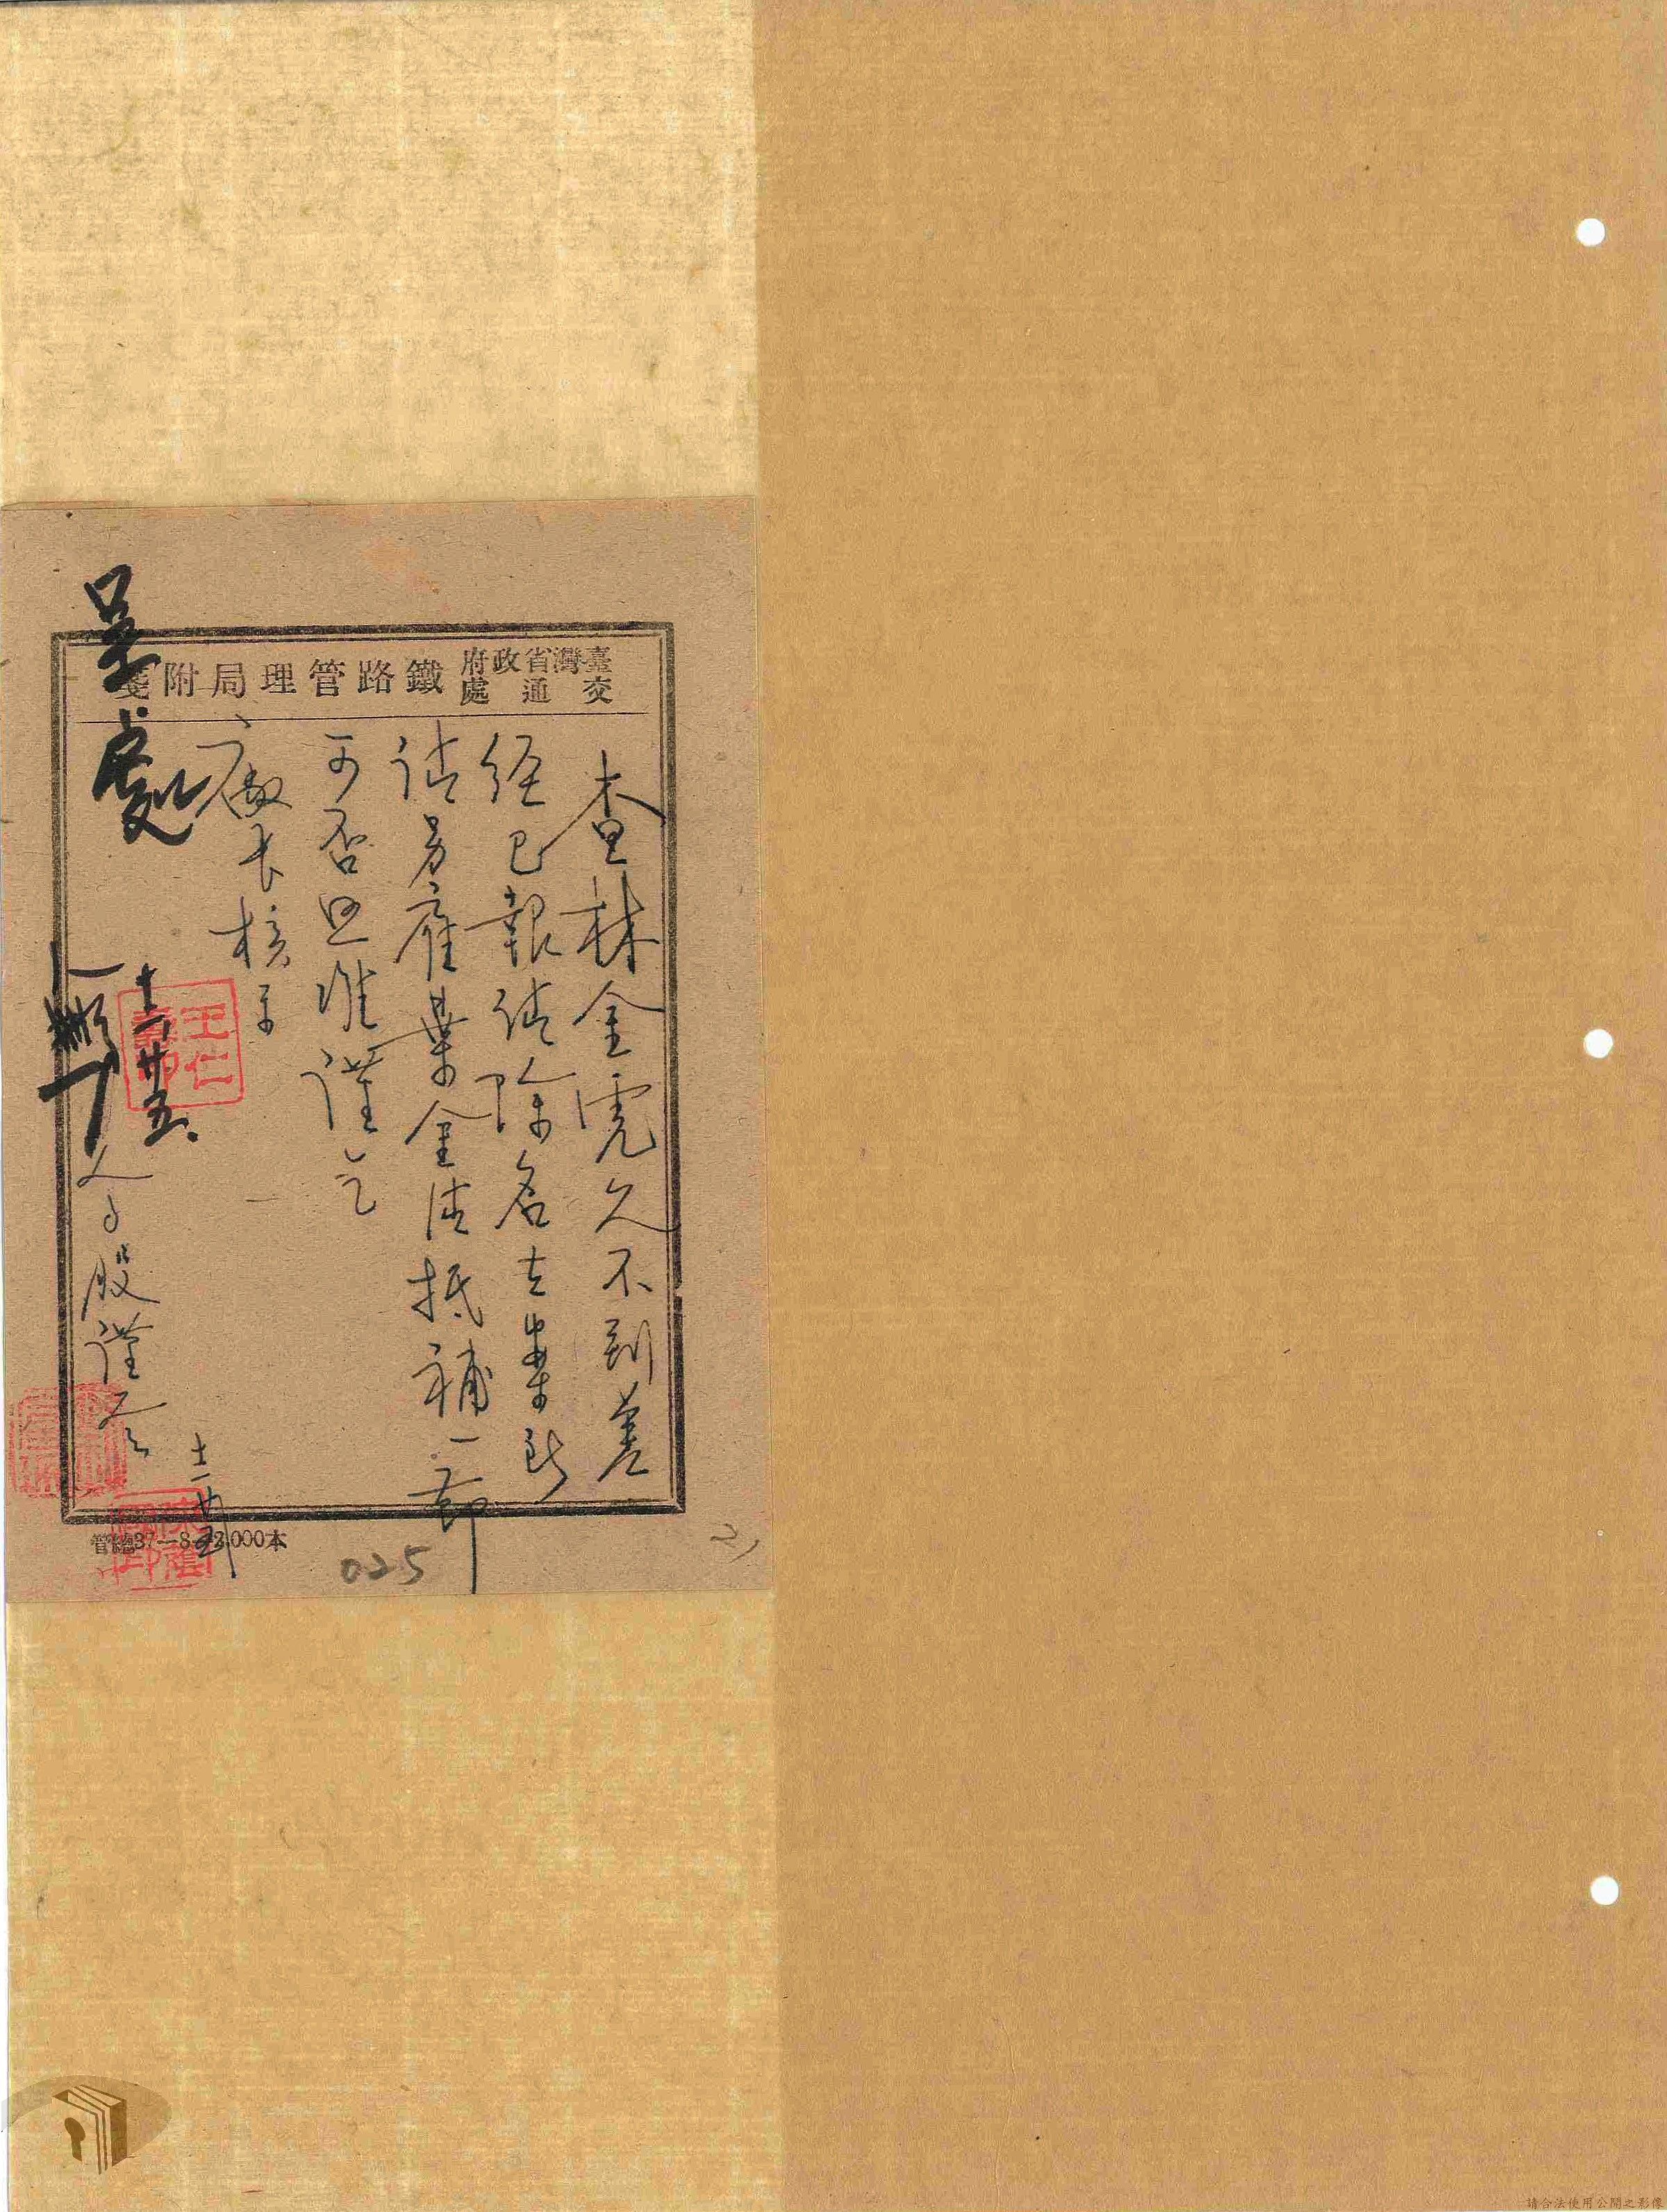 臺灣省政府交通處鐵路管理局附箋
查林金虎久不到差
經已報請除名去案所
請另雇葉金法抵補一節
可否照准謹乞
廠長核示
人事股謹簽
十一廿五
呈處
十一、廿五、
王仁
管總37—8—2,000本
025
請合法使用公開之影像